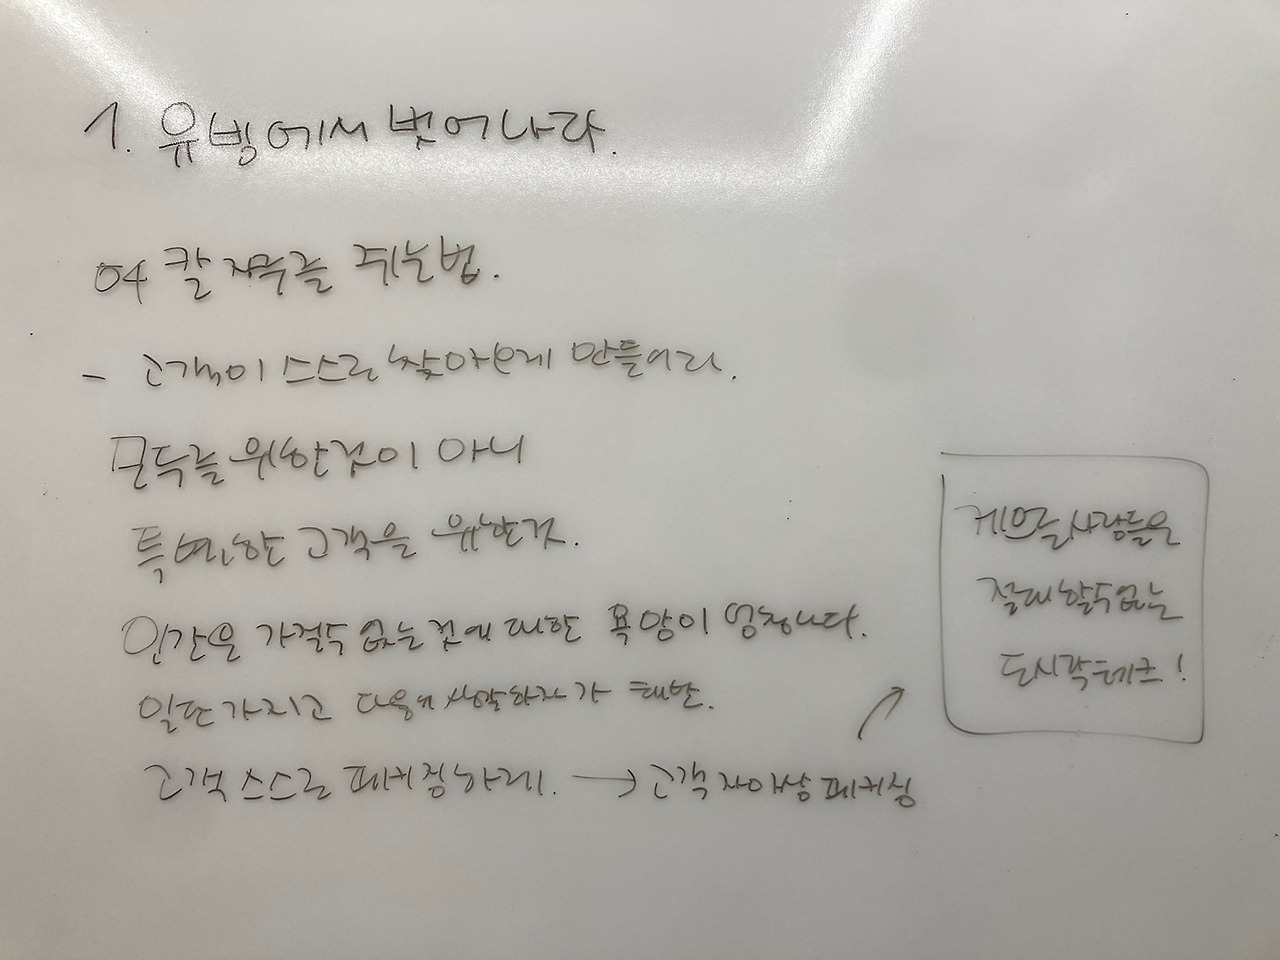 1. 유빙에서 벗어나라.
04 칼자루를 쥐는법.
- 고객이 스스로 찾아오게 만들어라.
모두를 위한것이 아니
특별한 고객을 위한것.
인간은 가질수 없는것에 대한 욕망이 엄청나다.
일단 가지고 다음에 생각하자가 태반.
고객 스스로 패키징하게. → 고객 자아상 패키징
게으른 사람들은
절대 할수 없는
도시락 테크!